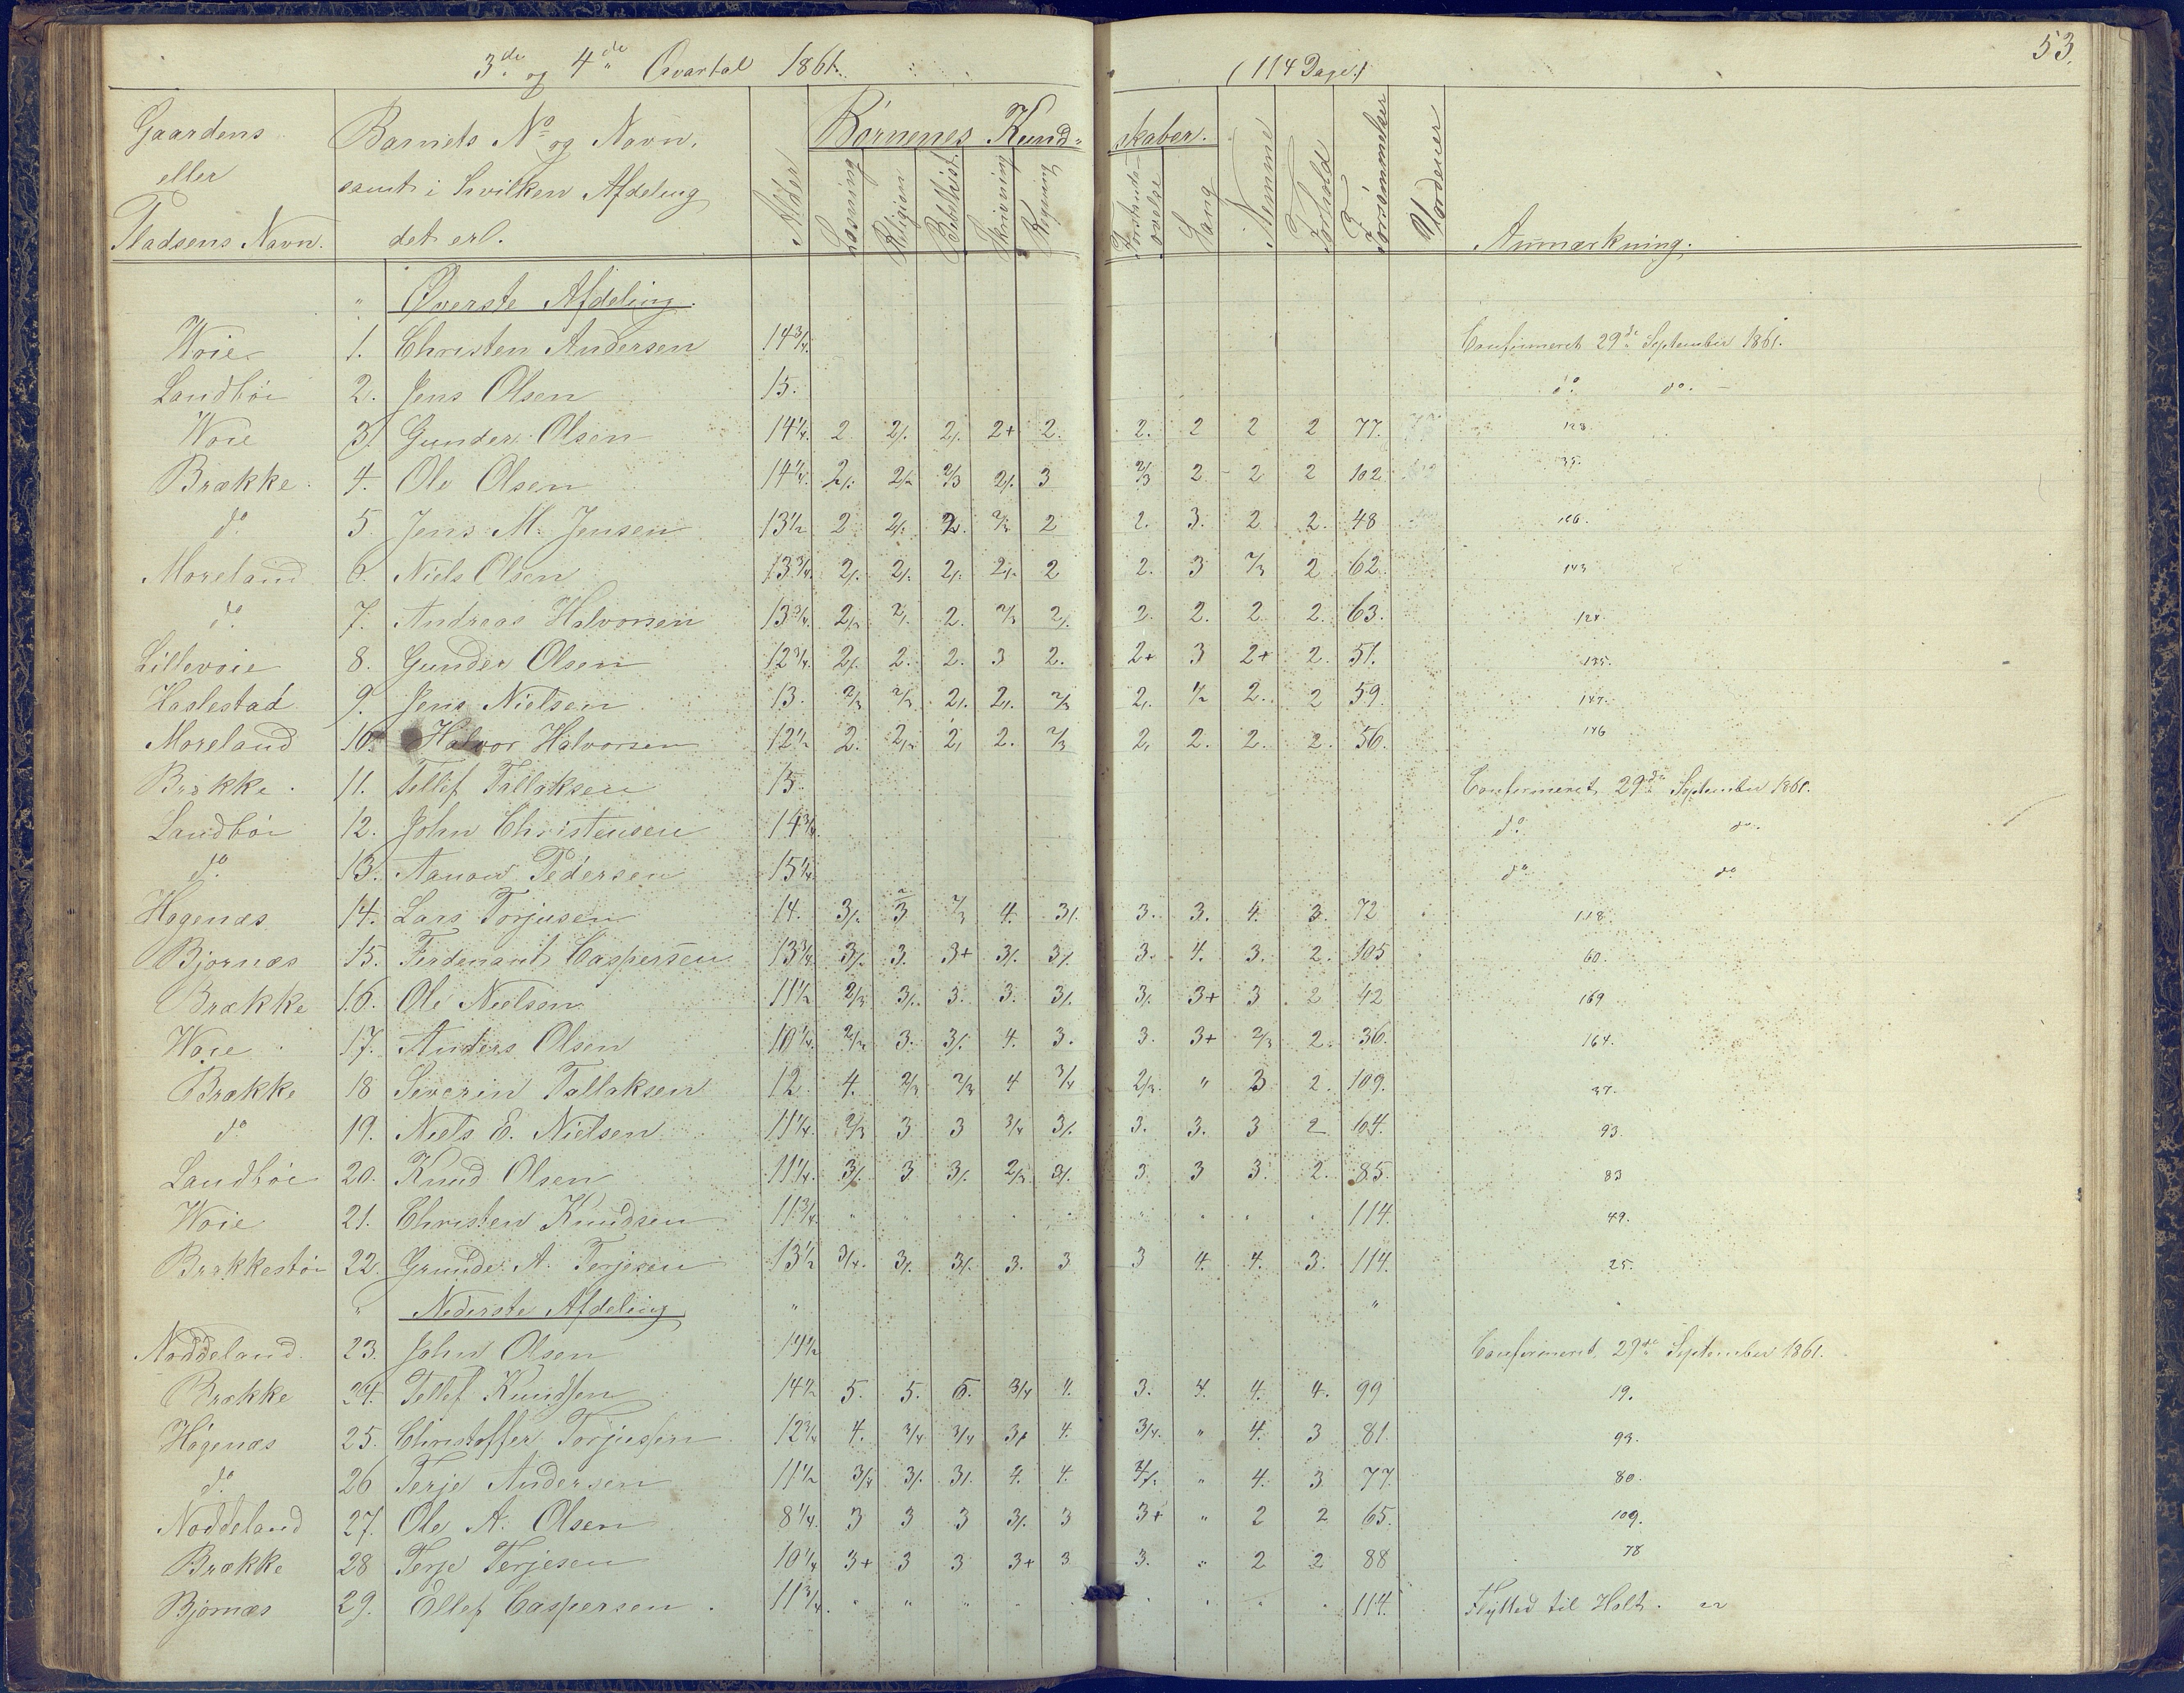 53.
3de og 4de Qvartal 1861. (114 Dage.)
Gaardens eller Pladsens Navn. Barnets No og Navn, samt i hvilken Afdeling det er. Alder Børnenes Kundskaber. Læsning Religion Bibelhist. Skrivning Regning Forstandsøvelse Sang Nemme Forhold Forsømmelser Vorderer Anmærkning.
" Øverste Afdeling.
Woie 1. Christen Andersen 14 3/4. Confirmeret 29de September 1861.
Landbøi 2. Jens Olsen 15. do. do. -
Woie 3. Gunder Olsen 14 1/4. 2 2/. 2/. 2+ 2. 2. 2 2 2 77. 128
Brække 4. Ole Olsen 14 1/4. 2/. 2/. 2/3 2/. 3 2/3 2 2 2 102
do 5 Jens M. Jensen 13 1/2 2 2/. 2. 2/3 2 2. 3. 2 2. 48 166.
Moreland 6. Niels Olsen 13 3/4. 2/. 2/. 2/. 2/. 2 2. 3 2/3 2 62 143
do. 7. Andreas Halvorsen 13 3/4. 2/3 2/. 2. 2/3 2/. 2. 2. 2. 2. 63. 124
Lillevoie 8. Gunder Olsen 12 3/4. 2/. 2. 2. 3 2. 2+ 3 2+ 2. 51. 135.
Haslestad 9. Jens Nielsen 13. 2/3 2/3 2/. 2/. 2/3 2/. 1/2 2. 2 59. 147.
Moreland 10. Halvor Halvorsen 12 1/2 2. 2/. 2/. 2. 2/3 2/. 2. 2. 2. 56. 146
Brække. 11. Tellef Tallaksen 15. Confirmeret 29de September 1861.
Landbøi 12. John Christensen 14 3/4. do. do.
do. 13. Aanon Pedersen 15 1/4. do do
Hogenæs 14. Lars Torjusen 14. 3/. 3 2/3 4. 3/. 3. 3. 4. 3. 72 118.
Bjornæs 15. Ferdenant Caspersen 13 3/4. 3/. 3. 3+ 3/. 3/. 3. 4. 3. 2. 105 60.
Brække 16. Ole Nielsen 11 1/2 2/3 3/. 3. 3. 3/. 3/. 3+ 3 2 42 169
Woie 17. Anders Olsen 10 1/4. 2/3 3. 3/. 4. 3. 3. 3+ 2/3 2. 36. 164.
Brække 18 Severin Tallaksen 12 4. 2/3 2/3 4 3/4 2/3. " 3 2. 109. 37.
do 19. Niels E. Nielsen 11 1/4. 2/3 3 3 3/4 3/. 3. 3. 3 2 104. 93.
Landbøi 20. Knud Olsen 11 1/4. 3/. 3 3/. 2/3 3/. 3. 3 3. 2. 85. 83
Woie 21. Christen Knudsen 11 3/4. 114. 49.
Brækkestøi 22. Gunder A. Terjesen 13 1/2 3/4. 3/. 3/. 3. 3 3 4. 4. 3. 114. 25.
" Nederste Afdeling " "
Noddeland. 23. John Olsen 14 1/2 Confirmeret 29de September 1861.
Brække 24. Tellef Knudsen 14 1/2 5. 5. 5. 3/4 4. 3. 4. 4. 4. 99 19.
Høgenæs 25. Christoffer Torjusen 12 3/4 4. 3/4 3/4 3/. 4. 3/4. " 4. 3 81. 93.
do. 26 Terje Andersen 11 1/2 3/4 3/. 3/. 4. 4. " 4. 3 77. 80.
Noddeland 27. Ole A. Olsen 8 1/4. 3 3 3 3/. 3 3+ " 2 2 65. 109.
Brække 28 Terje Terjesen 10 1/4 3+ 3 3 3+ 3 3. " 2 2 88 78
Bjornæs 29. Ellef Caspersen. 11 3/4. " " " 114. Flytted til Holt.